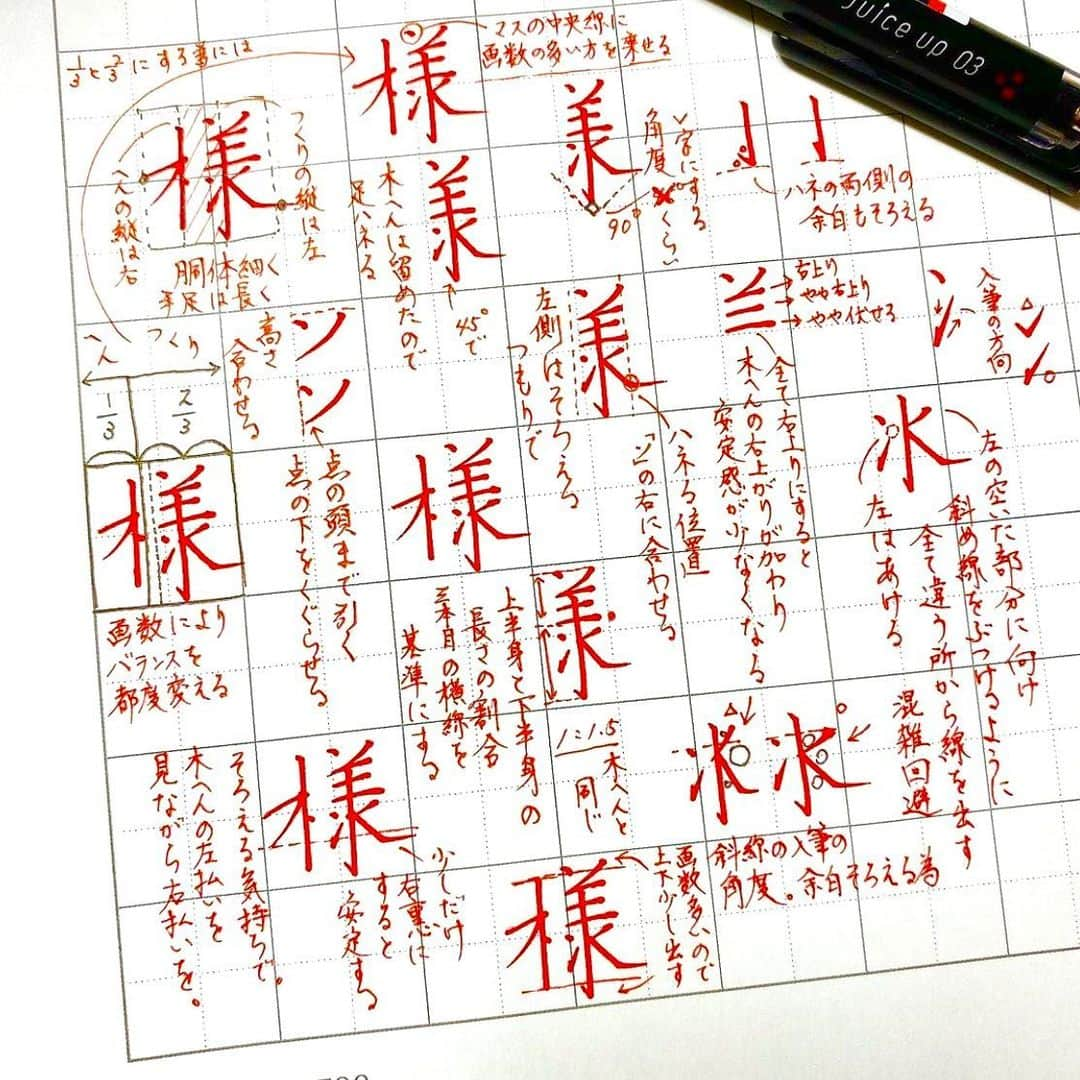 1/3と2/3にする事には
様
マスの中央線に
画数の多い方を乗せる
Juice up 03
様
つくりの縦は左
へんの縦は右
胴体細く
手足は長く
木へんは留めたので
足ハネる
45°で
い字にする
角度
くらい
90°
ハネの両側の
余白もそろえる
へん
つくり
1/3
2/3
様
画数により
バランスを
都度変える
高さ
合わせる
ソ
ソ
点の頭まで引く
点の下をくぐらせる
左側はそろえる
つもりで
ハネる位置
「ソ」の右に合わせる
右上り
やや右上り
やや伏せる
全て右上りにすると
木へんの右上がりが加わり
安定感が少なくなる
入筆の方向
左の空いた部分に向け
斜め線をぶつけるように
全て違う所から線を出す
混雑回避
左はあける
様
上半身と下半身の
長さの割合
三本目の横線を
基準にする
1:1.5
木へんと
同じ
斜線の入筆の
角度。余白そろえる為
様
そろえる気持ちで。
木へんの左払いを
見ながら右払いを。
少しだけ
右重心に
すると
安定する
様
画数多いので
上下少し出す